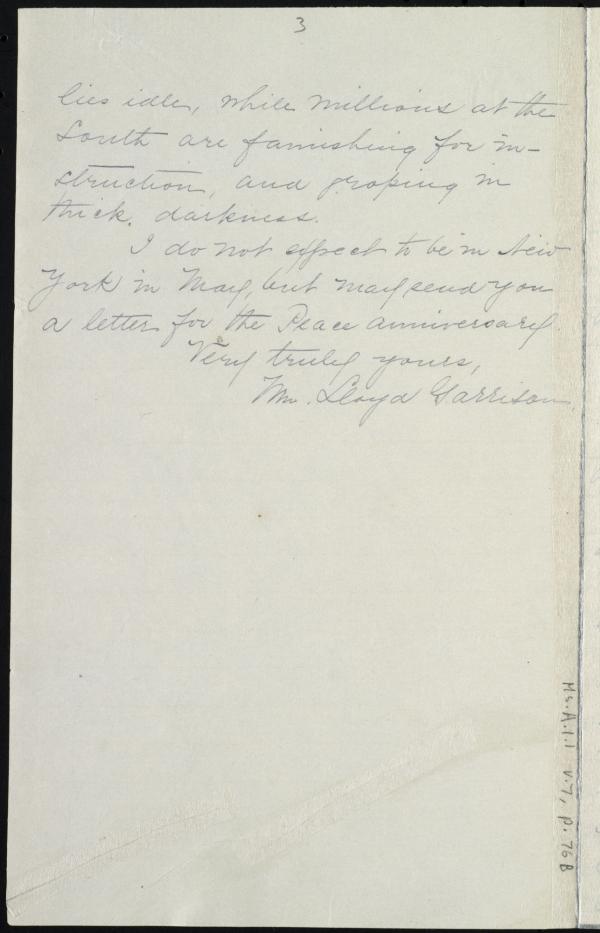 3
lies idle, while millions at the
South are famishing for in-
struction, and groping in
thick darkness.
I do not expect to be in New
York in May, but may send you
a letter for the Peace anniversary.
Very truly yours,
Wm. Lloyd Garrison.
Ms.A.1.1 v.7, p.76B